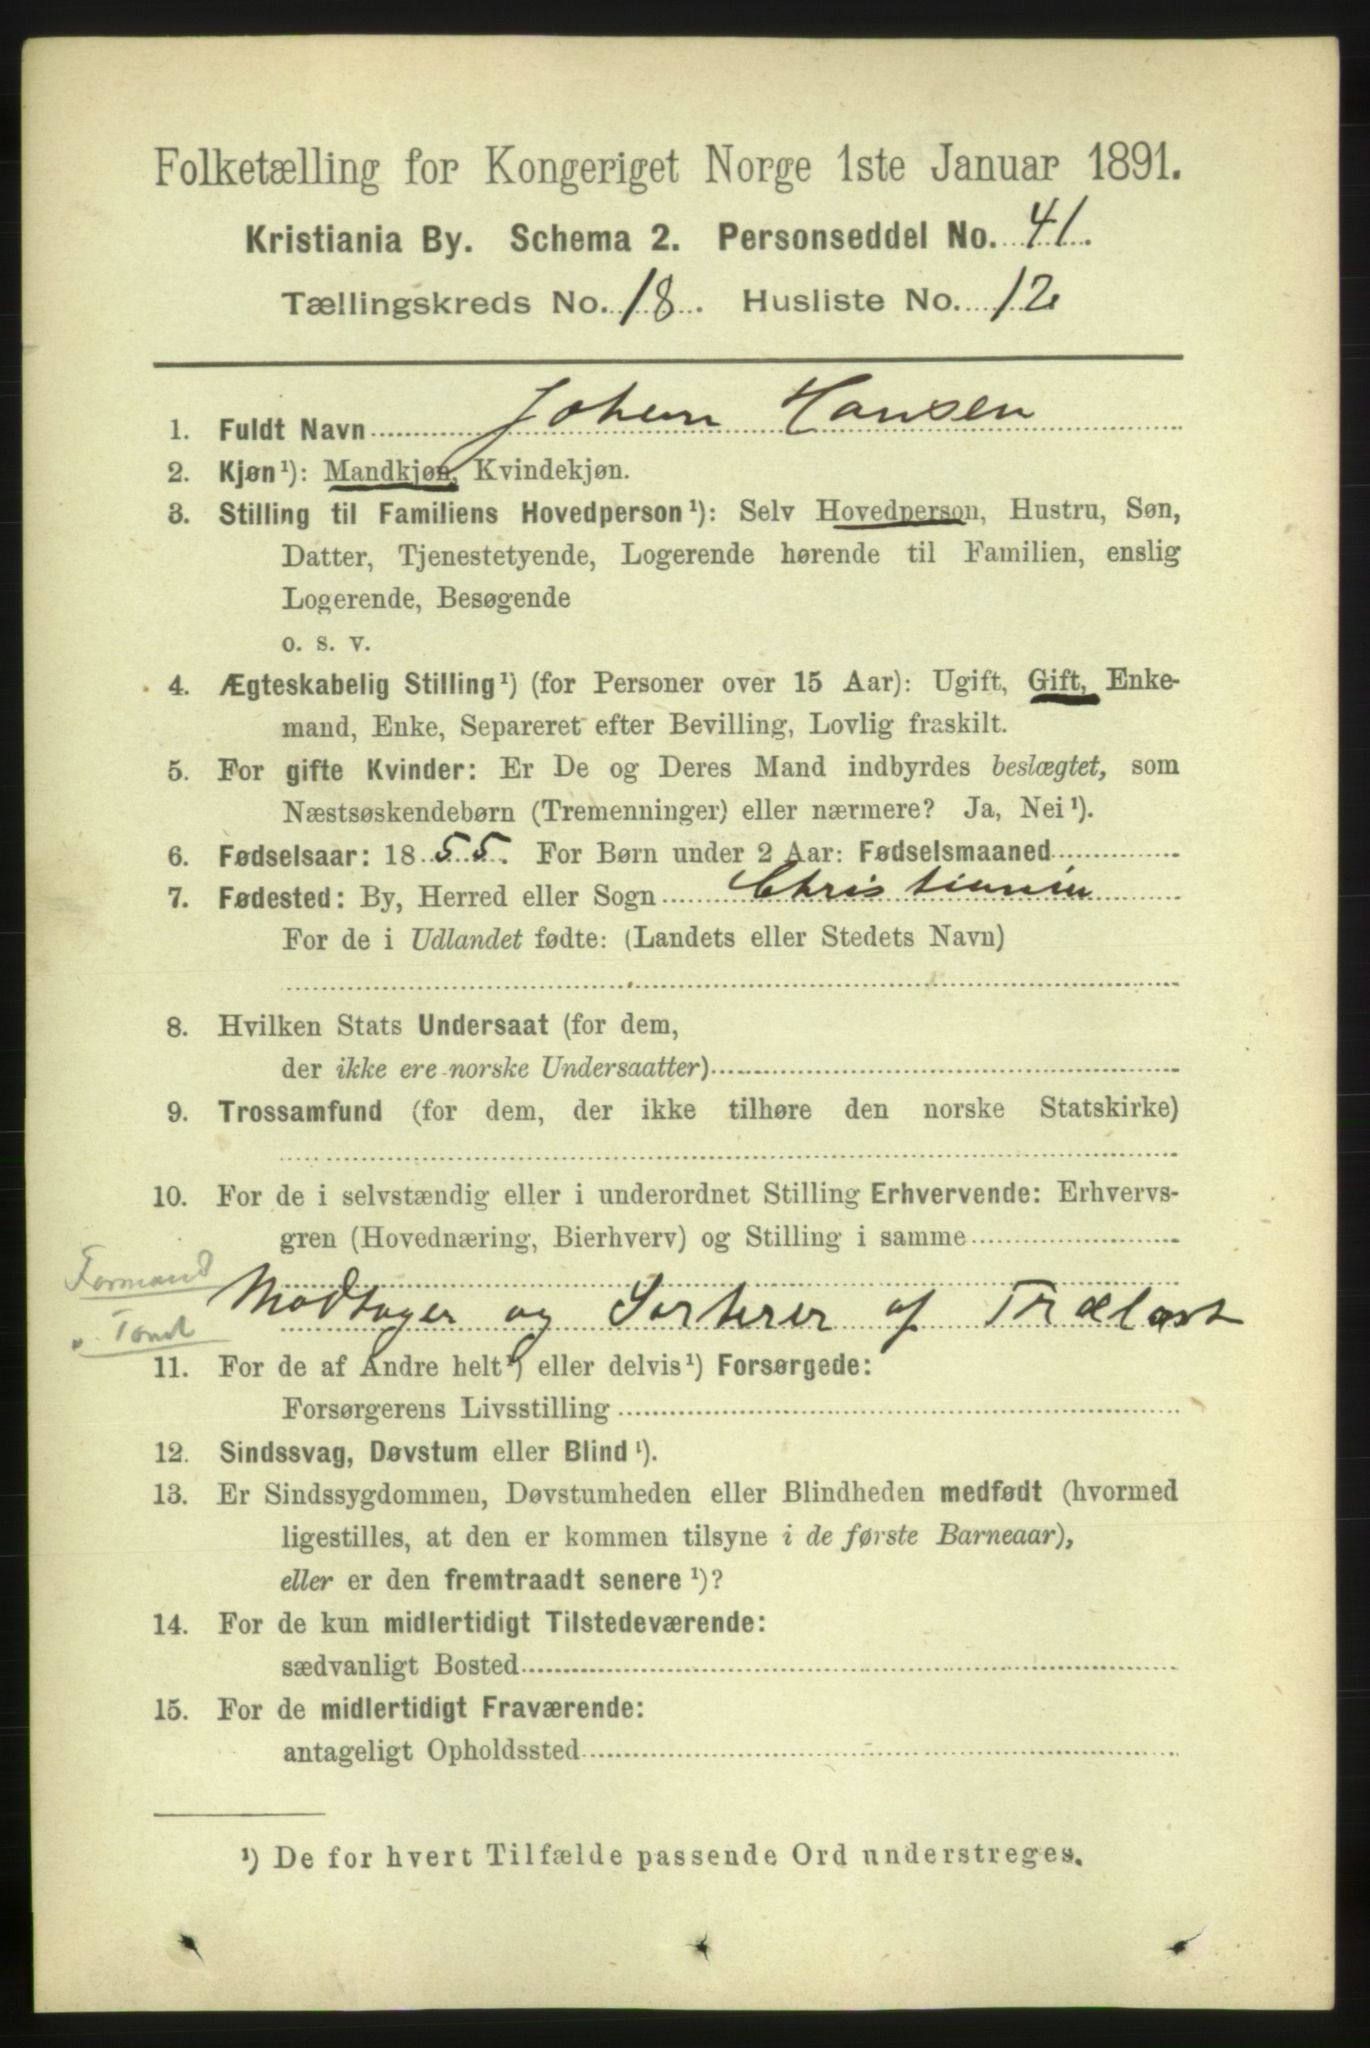 Folketælling for Kongeriget Norge 1ste Januar 1891.
Kristiania By. Schema 2. Personseddel No. 41.
Tællingskreds No. 18. Husliste No. 12
1. Fuldt Navn Johan Hansen
2. Kjøn¹): Mandkjøn, Kvindekjøn.
3. Stilling til Familiens Hovedperson¹): Selv Hovedperson, Hustru, Søn,
Datter, Tjenestetyende, Logerende hørende til Familien, enslig
Logerende, Besøgende
o. s. v.
4. Ægteskabelig Stilling¹) (for Personer over 15 Aar): Ugift, Gift, Enke-
mand, Enke, Separeret efter Bevilling, Lovlig fraskilt.
5. For gifte Kvinder: Er De og Deres Mand indbyrdes beslægtet, som
Næstsøskendebørn (Tremenninger) eller nærmere? Ja, Nei¹).
6. Fødselsaar: 1855. For Børn under 2 Aar: Fødselsmaaned
7. Fødested: By, Herred eller Sogn Christiania
For de i Udlandet fødte: (Landets eller Stedets Navn)
8. Hvilken Stats Undersaat (for dem,
der ikke ere norske Undersaatter)
9. Trossamfund (for dem, der ikke tilhøre den norske Statskirke)
10. For de i selvstændig eller i underordnet Stilling Erhvervende: Erhvervs-
gren (Hovednæring, Bierhverv) og Stilling i samme
Formand
Modtager og Sorterer af Trælast
11. For de af Andre helt¹) eller delvis¹) Forsørgede:
Forsørgerens Livsstilling
12. Sindssvag, Døvstum eller Blind¹).
13. Er Sindssygdommen, Døvstumheden eller Blindheden medfødt (hvormed
ligestilles, at den er kommen tilsyne i de første Barneaar),
eller er den fremtraadt senere¹)?
14. For de kun midlertidigt Tilstedeværende:
sædvanligt Bosted
15. For de midlertidigt Fraværende:
antageligt Opholdssted
¹) De for hvert Tilfælde passende Ord understreges.